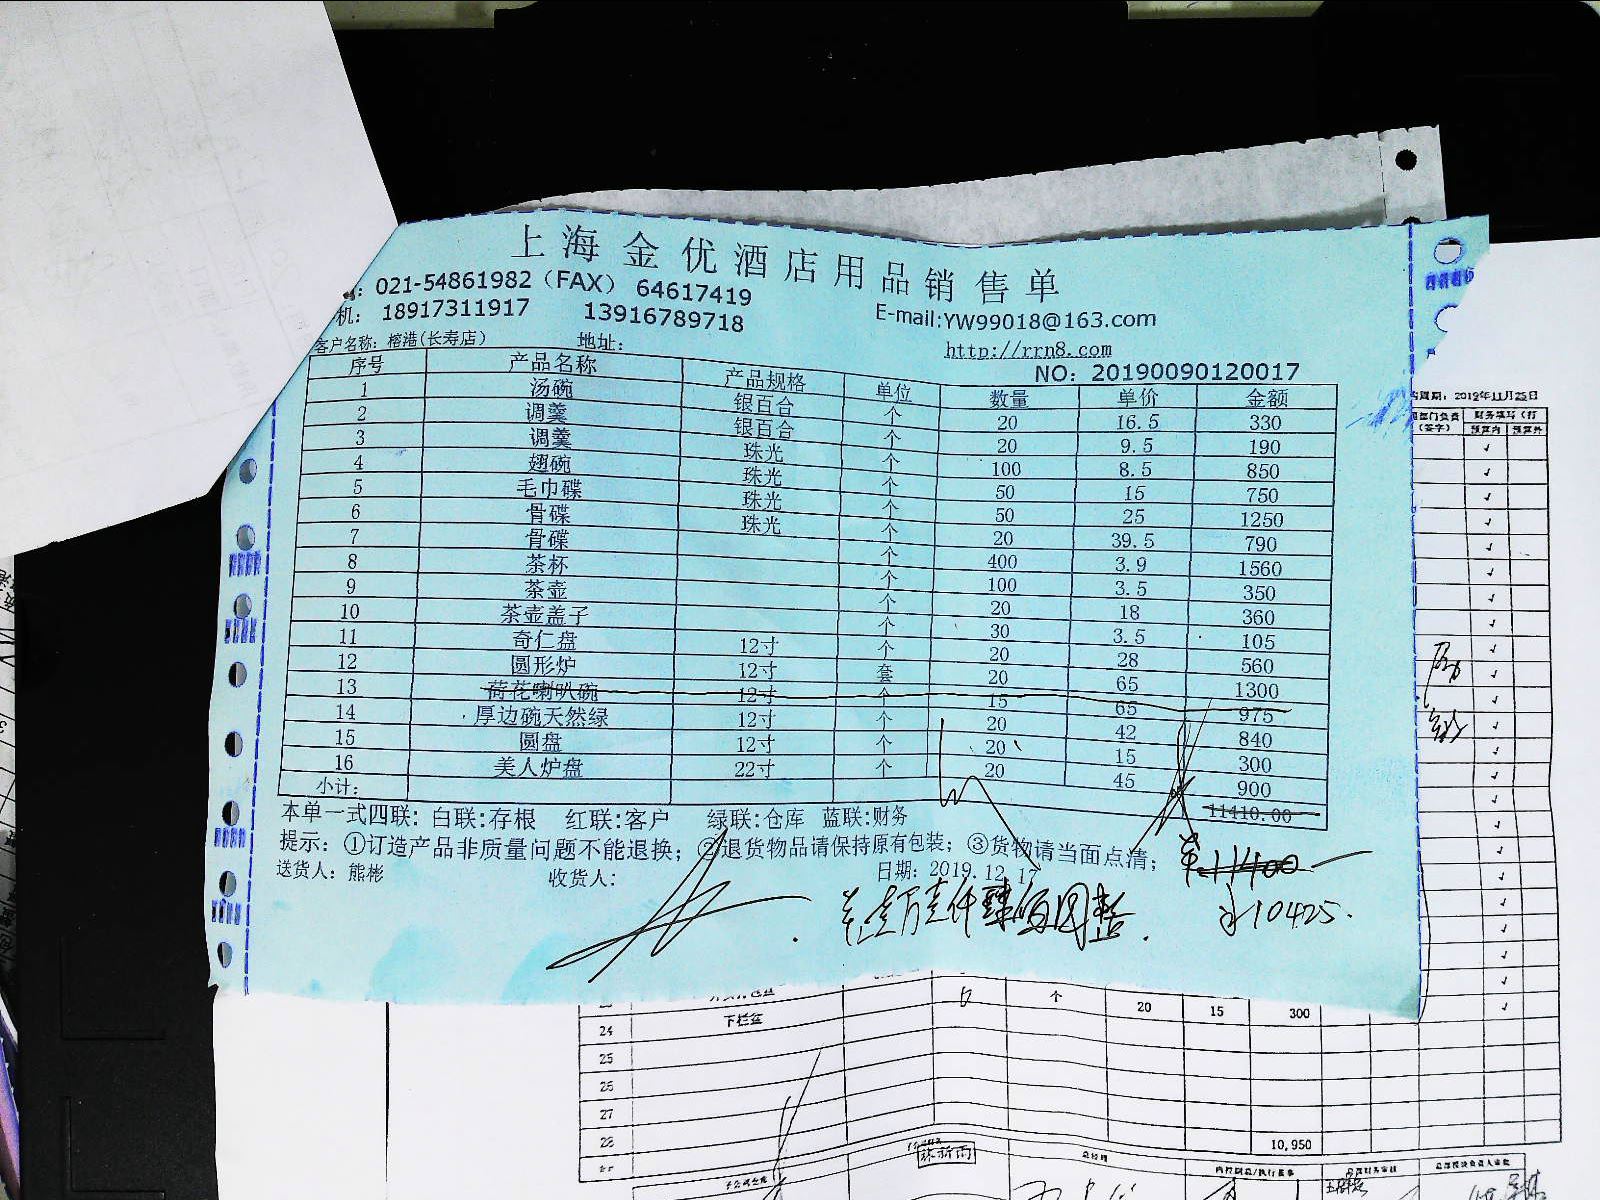 上海金优酒店用品销售单
021-54861982（FAX） 64617419
机： 18917311917 13916789718 E-mail:YW99018@163.com
客户名称：榕港(长寿店) 地址： http://rrn8.com
NO：20190090120017
序号 产品名称 产品规格 单位 数量 单价 金额
1 汤碗 银百合 个 20 16.5 330
2 调羹 银百合 个 20 9.5 190
3 调羹 珠光 个 100 8.5 850
4 翅碗 珠光 个 50 15 750
5 毛巾碟 珠光 个 50 25 1250
6 骨碟 珠光 个 20 39.5 790
7 骨碟 个 400 3.9 1560
8 茶杯 个 100 3.5 350
9 茶壶 个 20 18 360
10 茶壶盖子 个 30 3.5 105
11 奇仁盘 12寸 个 20 28 560
12 圆形炉 12寸 套 20 65 1300
13 荷花喇叭碗 12寸 个 15 65 975
14 厚边碗天然绿 12寸 个 20 42 840
15 圆盘 12寸 个 20 15 300
16 美人炉盘 22寸 个 20 45 900
小计： 11410.00
本单一式四联：白联:存根 红联:客户 绿联:仓库 蓝联:财务
提示：①订造产品非质量问题不能退换；②退货物品请保持原有包装；③货物请当面点清；
送货人：熊彬 收货人： 日期：2019.12.17
11400
壹万壹仟肆佰圆整 ¥10425.
周期：2019年11月25日
部门负责 财务填写（打
（签字） 预算内 预算外
个 20 15 300
24 下栏盆
25
26
27
28 10,950
总经理